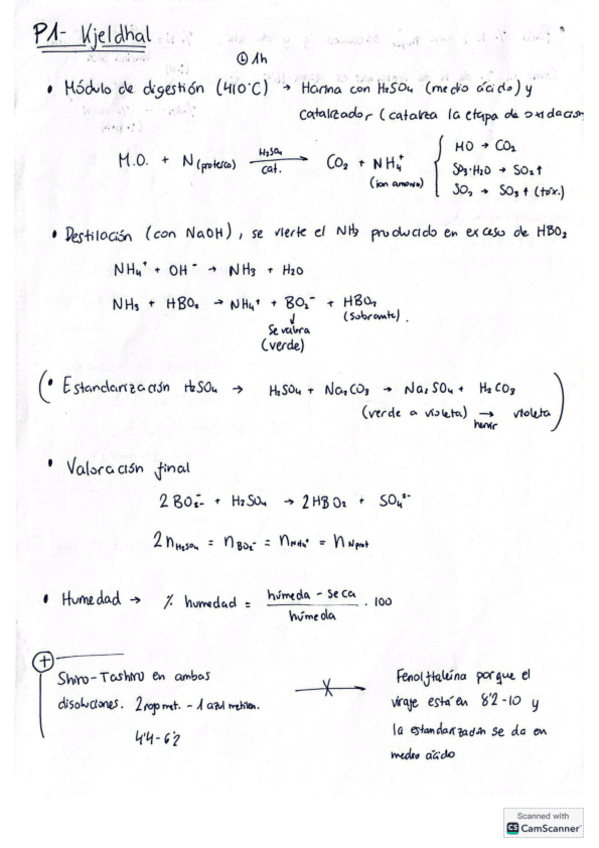 P1- Kjeldhal
1h
• Módulo de digestión (410°C) → Harina con H₂SO₄ (medio ácido) y
catalizador (cataliza la etapa de oxidación
M.O. + N(proteico) —H₂SO₄ cat.→ CO₂ + NH₄⁺ (ion amonio)
MO → CO₂
SO₃·H₂O → SO₂↑
SO₂ → SO₃↑ (tóx.)
• Destilación (con NaOH), se vierte el NH₃ producido en exceso de HBO₂
NH₄⁺ + OH⁻ → NH₃ + H₂O
NH₃ + HBO₂ → NH₄⁺ + BO₂⁻ + HBO₂
↓ (sobrante).
Se valora
(verde)
(• Estandarización H₂SO₄ → H₂SO₄ + Na₂CO₃ → Na₂SO₄ + H₂CO₃
(verde a violeta) → hervir violeta)
• Valoración final
2BO₂⁻ + H₂SO₄ → 2HBO₂ + SO₄²⁻
2n H₂SO₄ = n BO₂⁻ = n NH₄⁺ = n Nprot
• Humedad → % humedad = húmeda - seca / húmeda · 100
+
Shiro-Tashiro en ambos
disoluciones. 2 rojo met. - 1 azul metilen.
4'4-6'2
Fenolftaleína porque el
viraje está en 8'2-10 y
la estandarización se da en
medio ácido
Scanned with
CS CamScanner